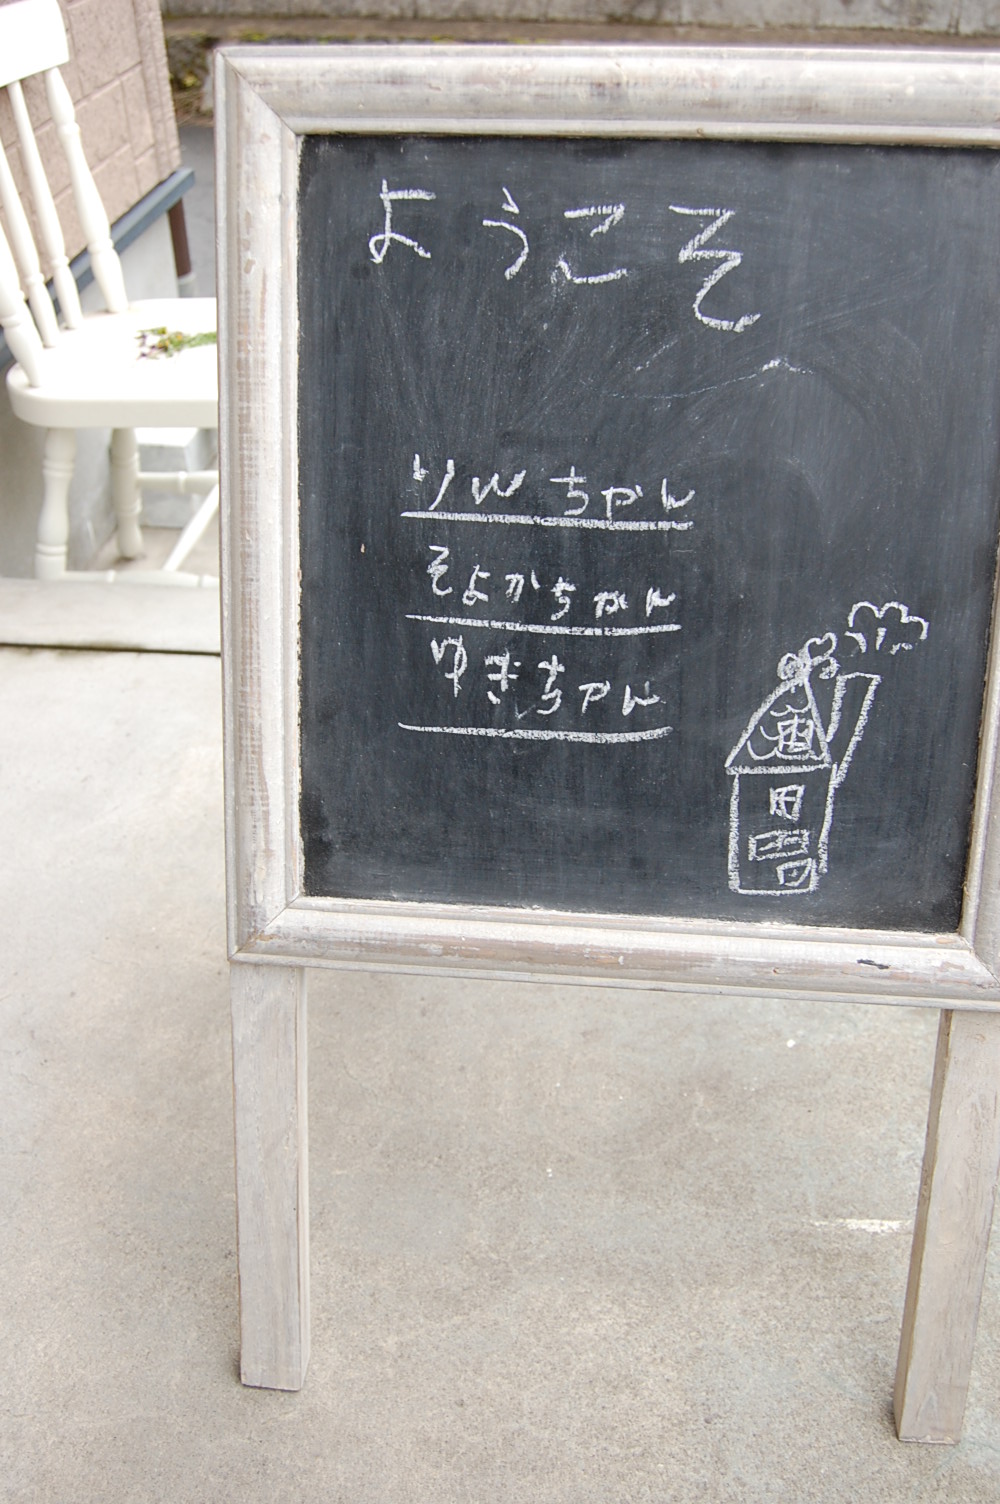 ようこそ
りんちゃん
そよかちゃん
ゆきちゃん